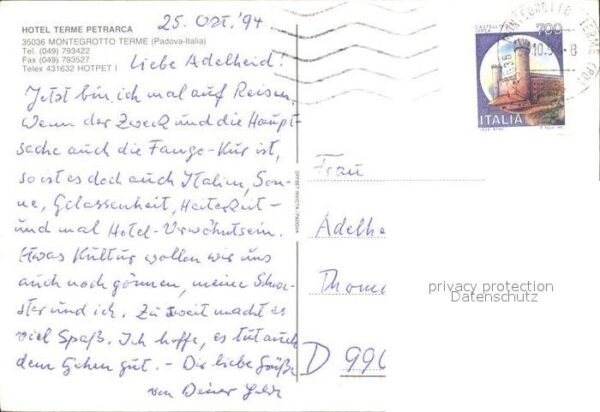 25. Okt. '94
HOTEL TERME PETRARCA
35036 MONTEGROTTO TERME (Padova-Italia)
Tel. (049) 793422
Fax (049) 793527
Telex 431632 HOTPET I
Liebe Adelheid!
Jetzt bin ich mal auf Reisen.
Wenn der Zweck und die Haupt-
sache auch die Fango-Kur ist,
so ist es doch auch Italien, Son-
ne, Gelassenheit, Heiterkeit -
und mal Hotel-Verwöhntsein.
Etwas Kultur wollen wir uns
auch noch gönnen, meine Schwe-
ster und ich. Zu zweit macht es
viel Spaß. Ich hoffe, es tut auch
dem Gehen gut. - Dir liebe Grüße
von Deiner
700
ITALIA
Frau
Adelhe
Thoma
D 990
privacy protection
Datenschutz